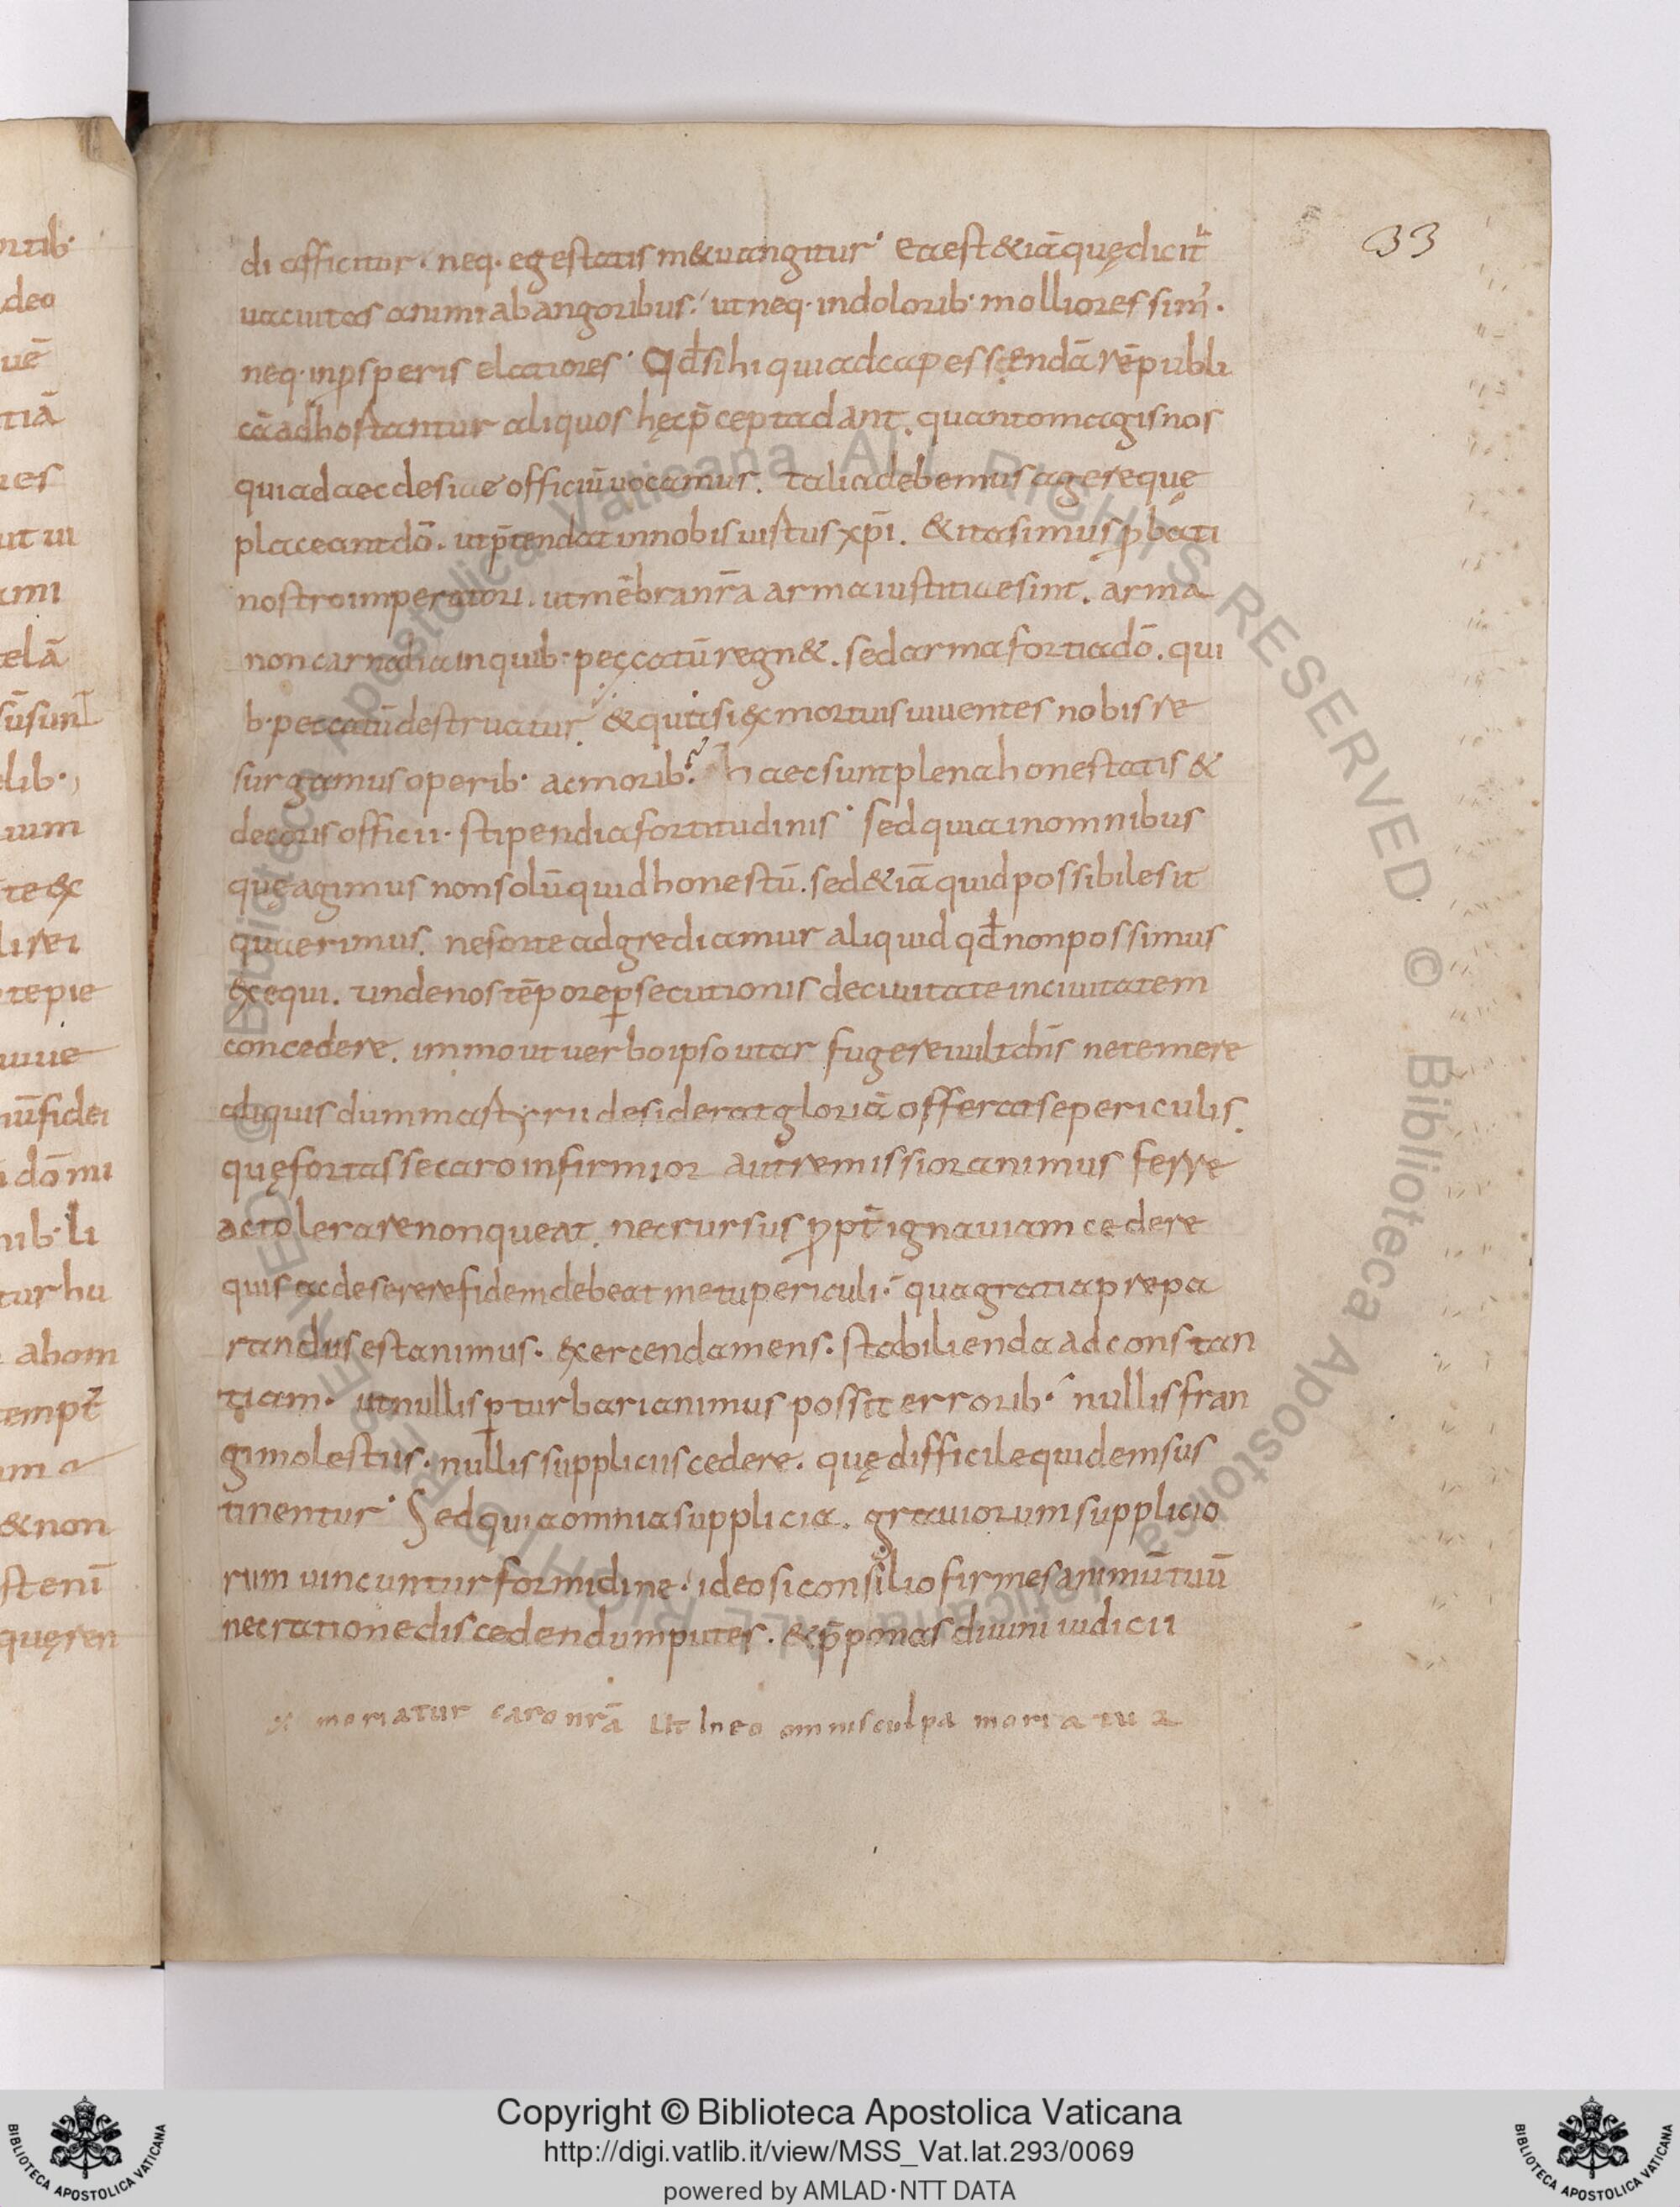 di afficitur. neq. egestatis m&u angitur. Ea est &iā quę dicit̄
uacuitas animi ab angoribus. ut neq. in dolorib. molliores sim᾽.
neq. in ꝓsperis elatiores. Qd̄ si hi qui ad capessęndā rēpubli
cā adhostantur aliquos hęc p̄cepta dant. quanto magis nos
qui ad aecclesiae officiū uocamur. talia debemus agere quę
placeant dō. ut p̄tendat in nobis uistus xp̄i. & ita simus ꝓbati
nostro imperatori. ut mēbra nr̄a arma iustitiae sint. arma
non carnalia in quib. peccatū regn&. sed arma fortia dō. qui
b. peccatū destruatur. & quasi ex mortuis uiuentes nobis re
surgamus operib. ac morib. haec sunt plena honestatis &
decoris officii. stipendia fortitudinis. Sed quia in omnibus
quę agimus non solū quid honestū. sed &iā quid possibile sit
quaerimus. ne forte adgrediamur aliquid qd̄ non possimus
exequi. unde nos tēpore ꝑsecutionis de ciuitate in ciuitatem
concedere. immo ut uerbo ipso utar fugere uult dn̄s ne temere
aliquis dum mastyrii desiderat gloriā offerat se periculis.
quę fortasse caro infirmior aut remissior animus ferre
ac tolerare non queat. nec rursus ꝓpt̄ ignauiam cedere
quis ac deserere fidem debeat metu periculi. qua gratia prepa
randus est animus. exercenda mens. stabilienda ad constan
tiam. ut nullis ꝑturbari animus possit errorib. nullis fran
gi molestiis. nullis suppliciis cedere. quę difficile quidem sus
tinentur. Sed quia omnia supplicia. grauiorum supplicio
rum uincuntur formidine. ideo si consilio firmes animū tuū
nec ratione discedendum putes. & p̄ponas diuini iudicii
moriatur caro nr̄a ut in eo omnis culpa moriatur
33
© Biblioteca Apostolica Vaticana ALL RIGHTS RESERVED © Biblioteca Apostolica Vaticana ALL RIGHTS RESERVED
Copyright © Biblioteca Apostolica Vaticana
http://digi.vatlib.it/view/MSS_Vat.lat.293/0069
powered by AMLAD·NTT DATA
BIBLIOTECA APOSTOLICA VATICANA
BIBLIOTECA APOSTOLICA VATICANA